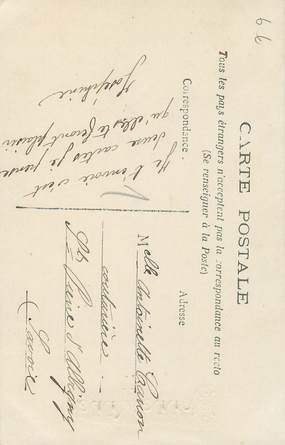 CARTE POSTALE
Tous les pays étrangers n'acceptent pas la correspondance au recto
(Se renseigner à la Poste)
Correspondance.
Adresse
Je t'envoie c'est
deux cartes je pense
qu'elles te feront plaisir
Joséphine
Melle Antoinette
couturière
Ste Reine d'Allery
Savoie